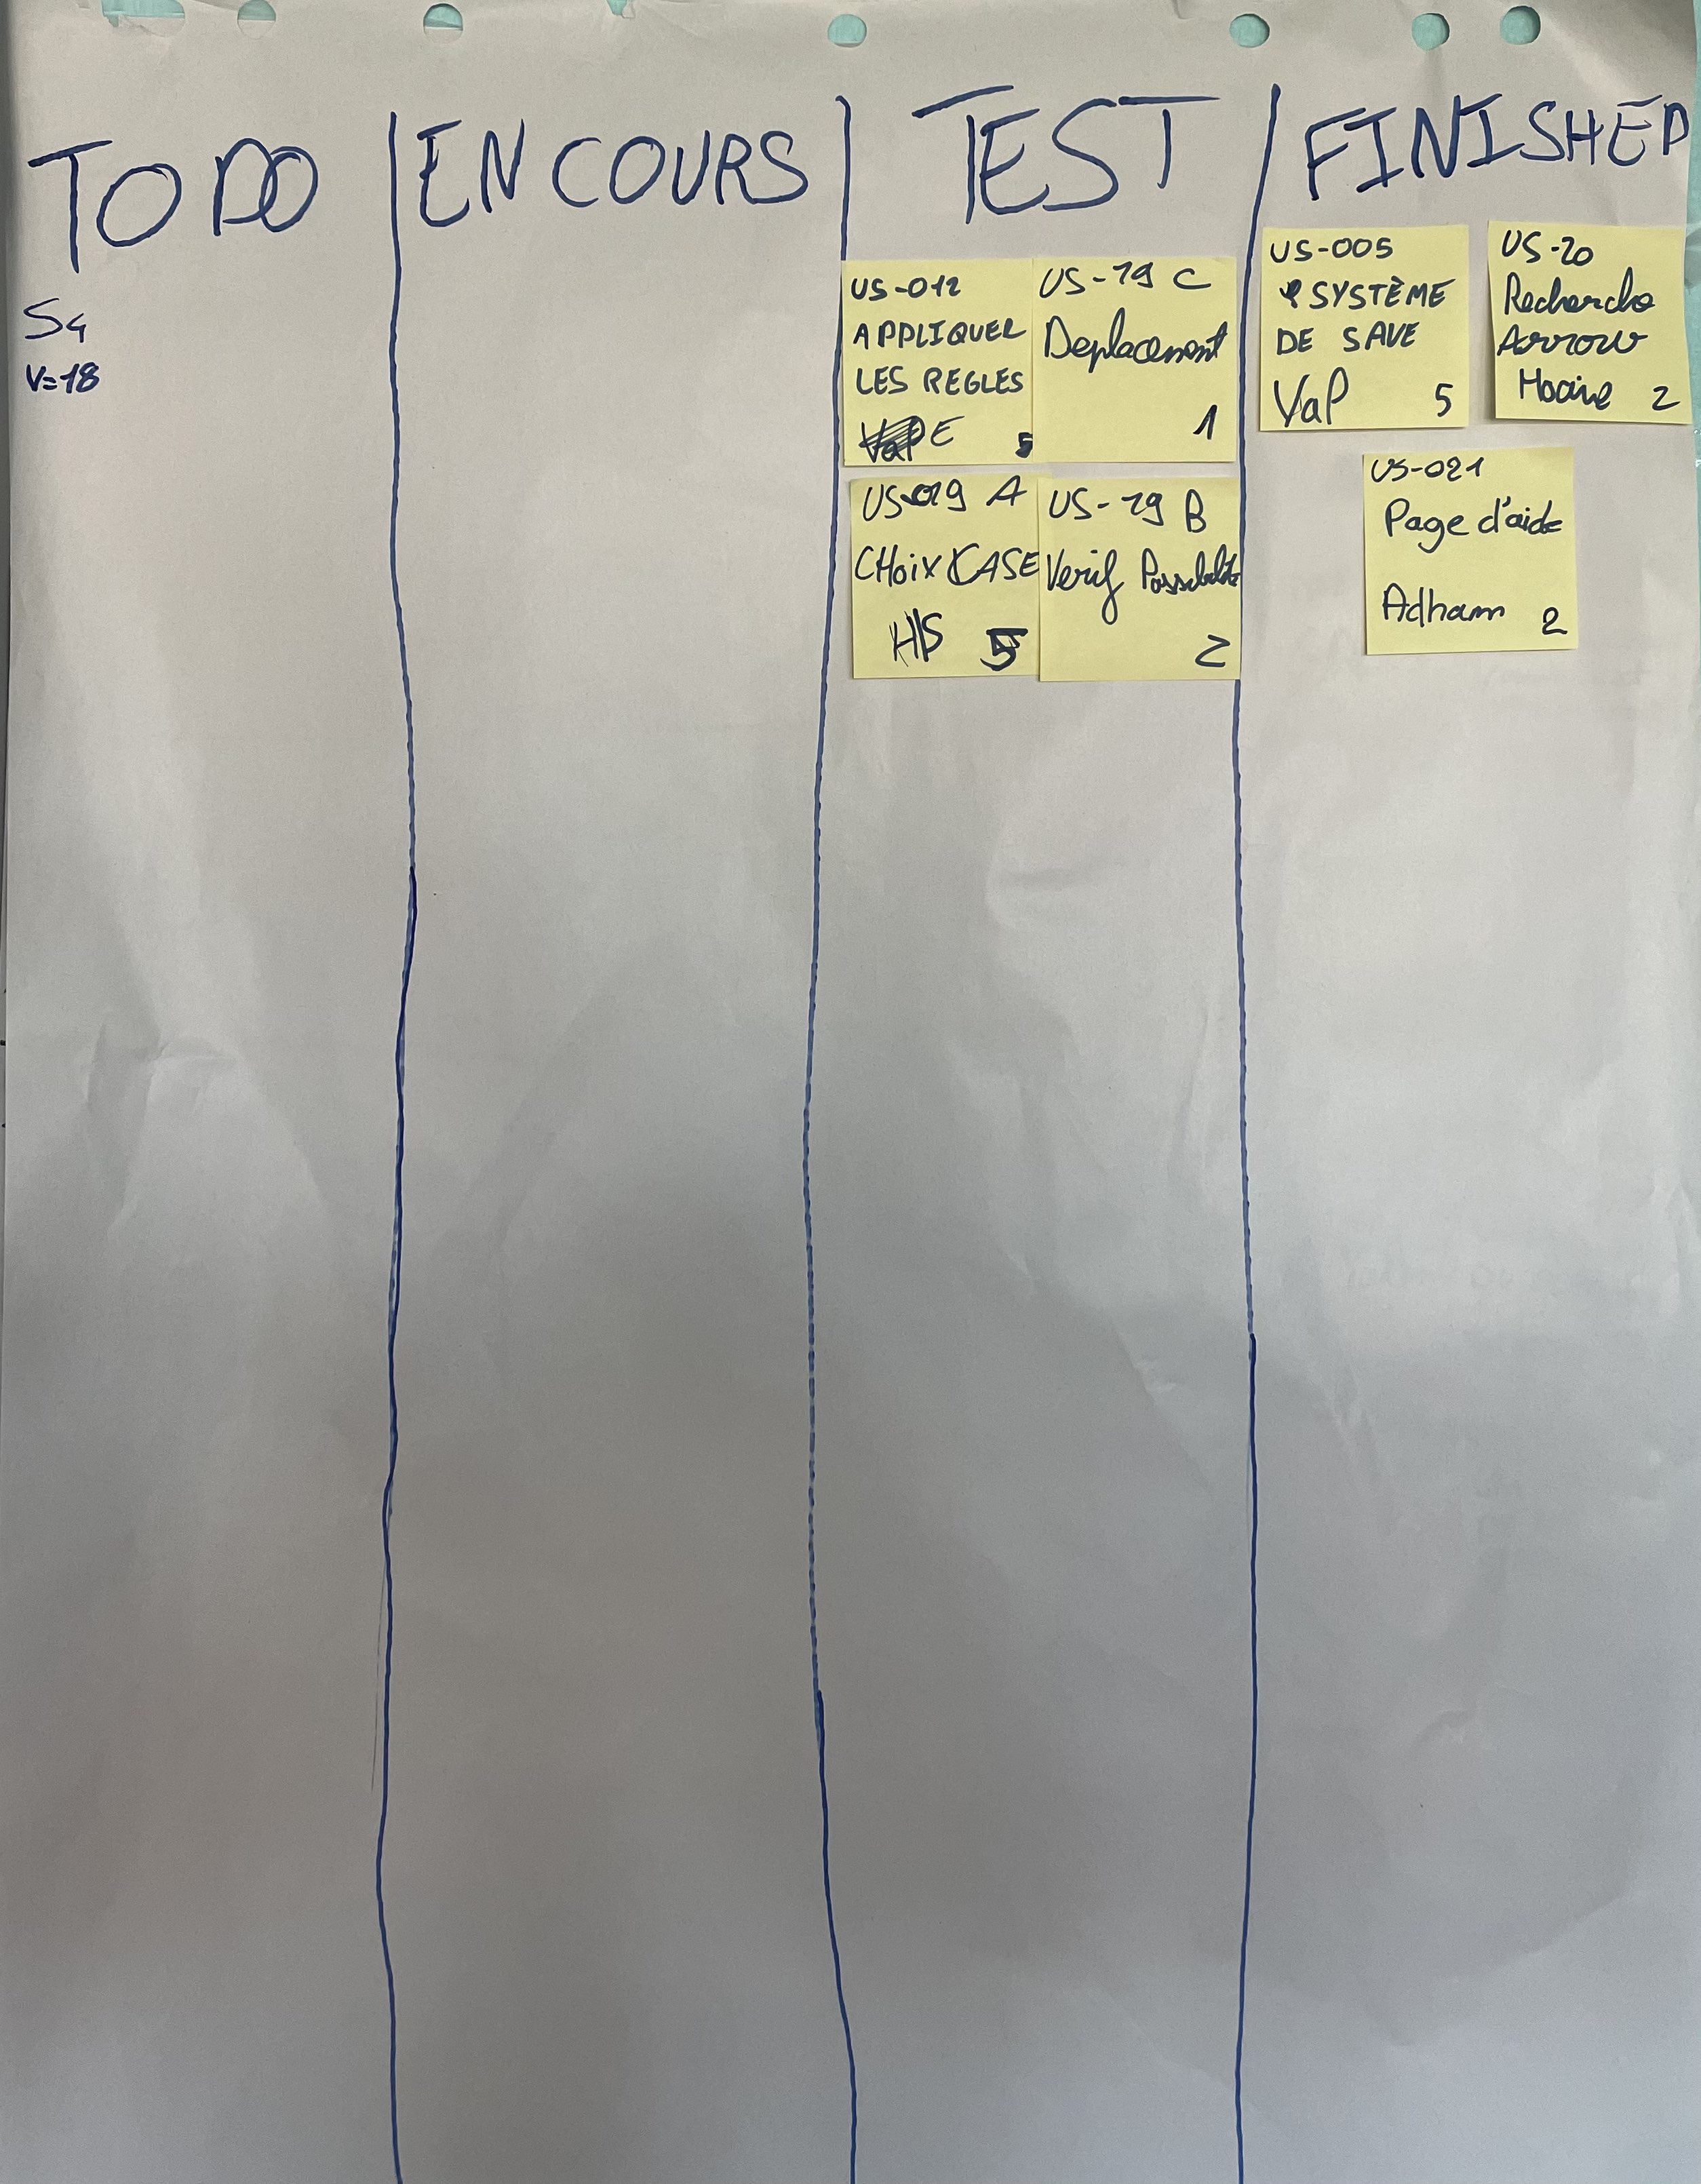 TO DO
EN COURS
TEST
FINISHED
S4
V=18
US-012
APPLIQUER
LES REGLES
E 5
US-19 C
Deplacement
1
US-019 A
CHoix CASE
H/S 5
US-19 B
Verif Possibilite
2
US-005
SYSTÈME
DE SAVE
VaP 5
US-20
Recherche
Arrow
Hocine 2
US-021
Page d'aide
Adham 2